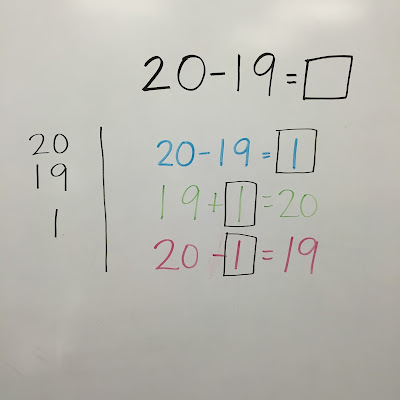 20-19=□
20
19
1
20-19=1
19+1=20
20-1=19